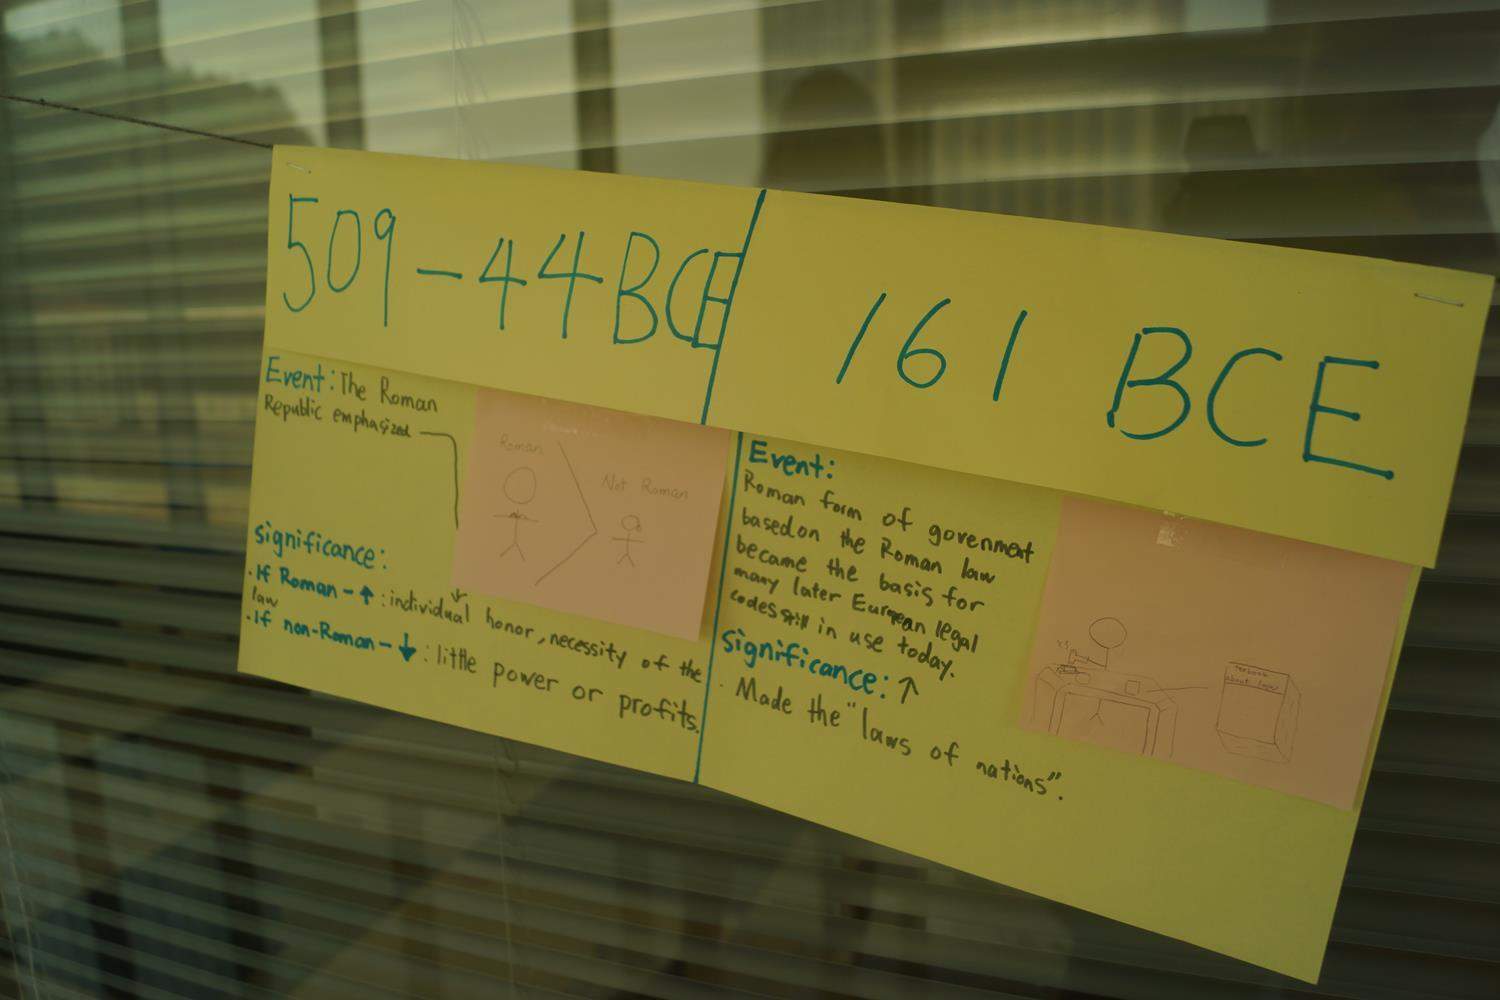 509-44BCE
Event: The Roman
Republic emphasized
Roman
Not Roman
significance:
· If Roman - ↑ : individual honor, necessity of the
law
· If non-Roman - ↓ : little power or profits.
161 BCE
Event:
Roman form of govenment
based on the Roman law
became the basis for
many later European legal
codes still in use today.
significance: ↑
· Made the "laws of nations".
about law